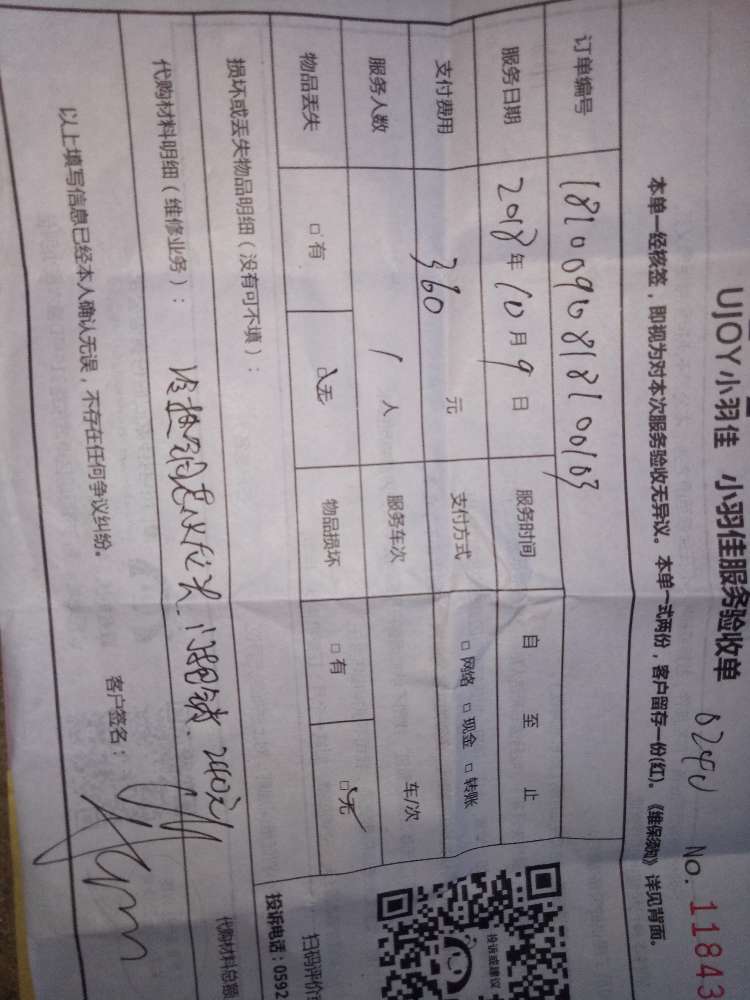 UJOY小羽佳 小羽佳服务验收单
0240 No. 11843
本单一经核签，即视为对本次服务验收无异议。本单一式两份，客户留存一份(红)。《维保须知》详见背面。
订单编号
服务日期 2018年10月9日 服务时间 自 至 止
支付费用 360 元 支付方式 □ 网络 □ 现金 □ 转账
服务人数 1 人 服务车次 车/次
物品丢失 □有 □无 物品损坏 □有 □无
损坏或丢失物品明细（没有可不填）：
代购材料明细（维修业务）： 240元
代购材料总额
以上填写信息已经本人确认无误，不存在任何争议纠纷。
客户签名：
投诉或建议
扫码评价
投诉电话：0592